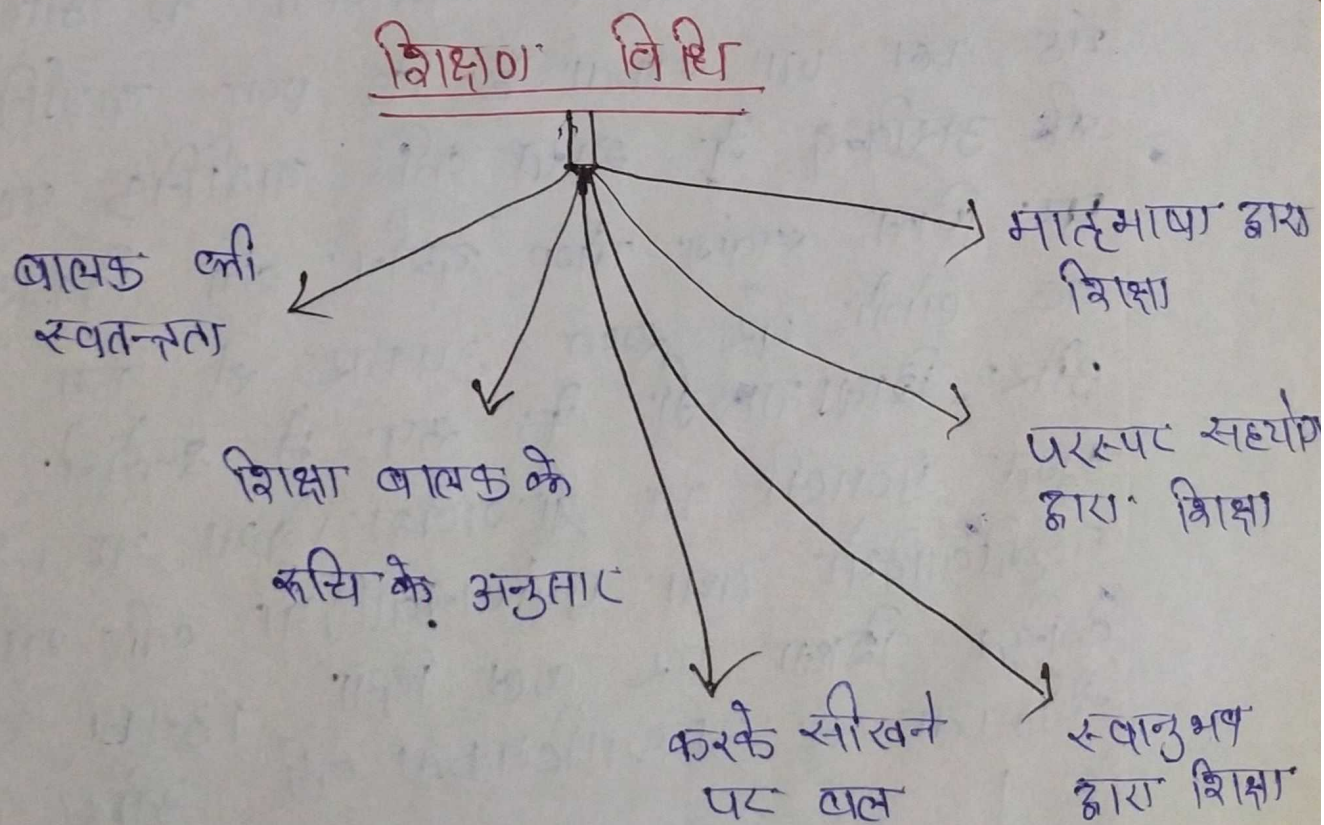 शिक्षण विधि
बालक की
स्वतन्त्रता
शिक्षा बालक के
रूचि के अनुसार
करके सीखने
पर बल
स्वानुभव
द्वारा शिक्षा
परस्पर सहयोग
द्वारा शिक्षा
मातृभाषा द्वारा
शिक्षा